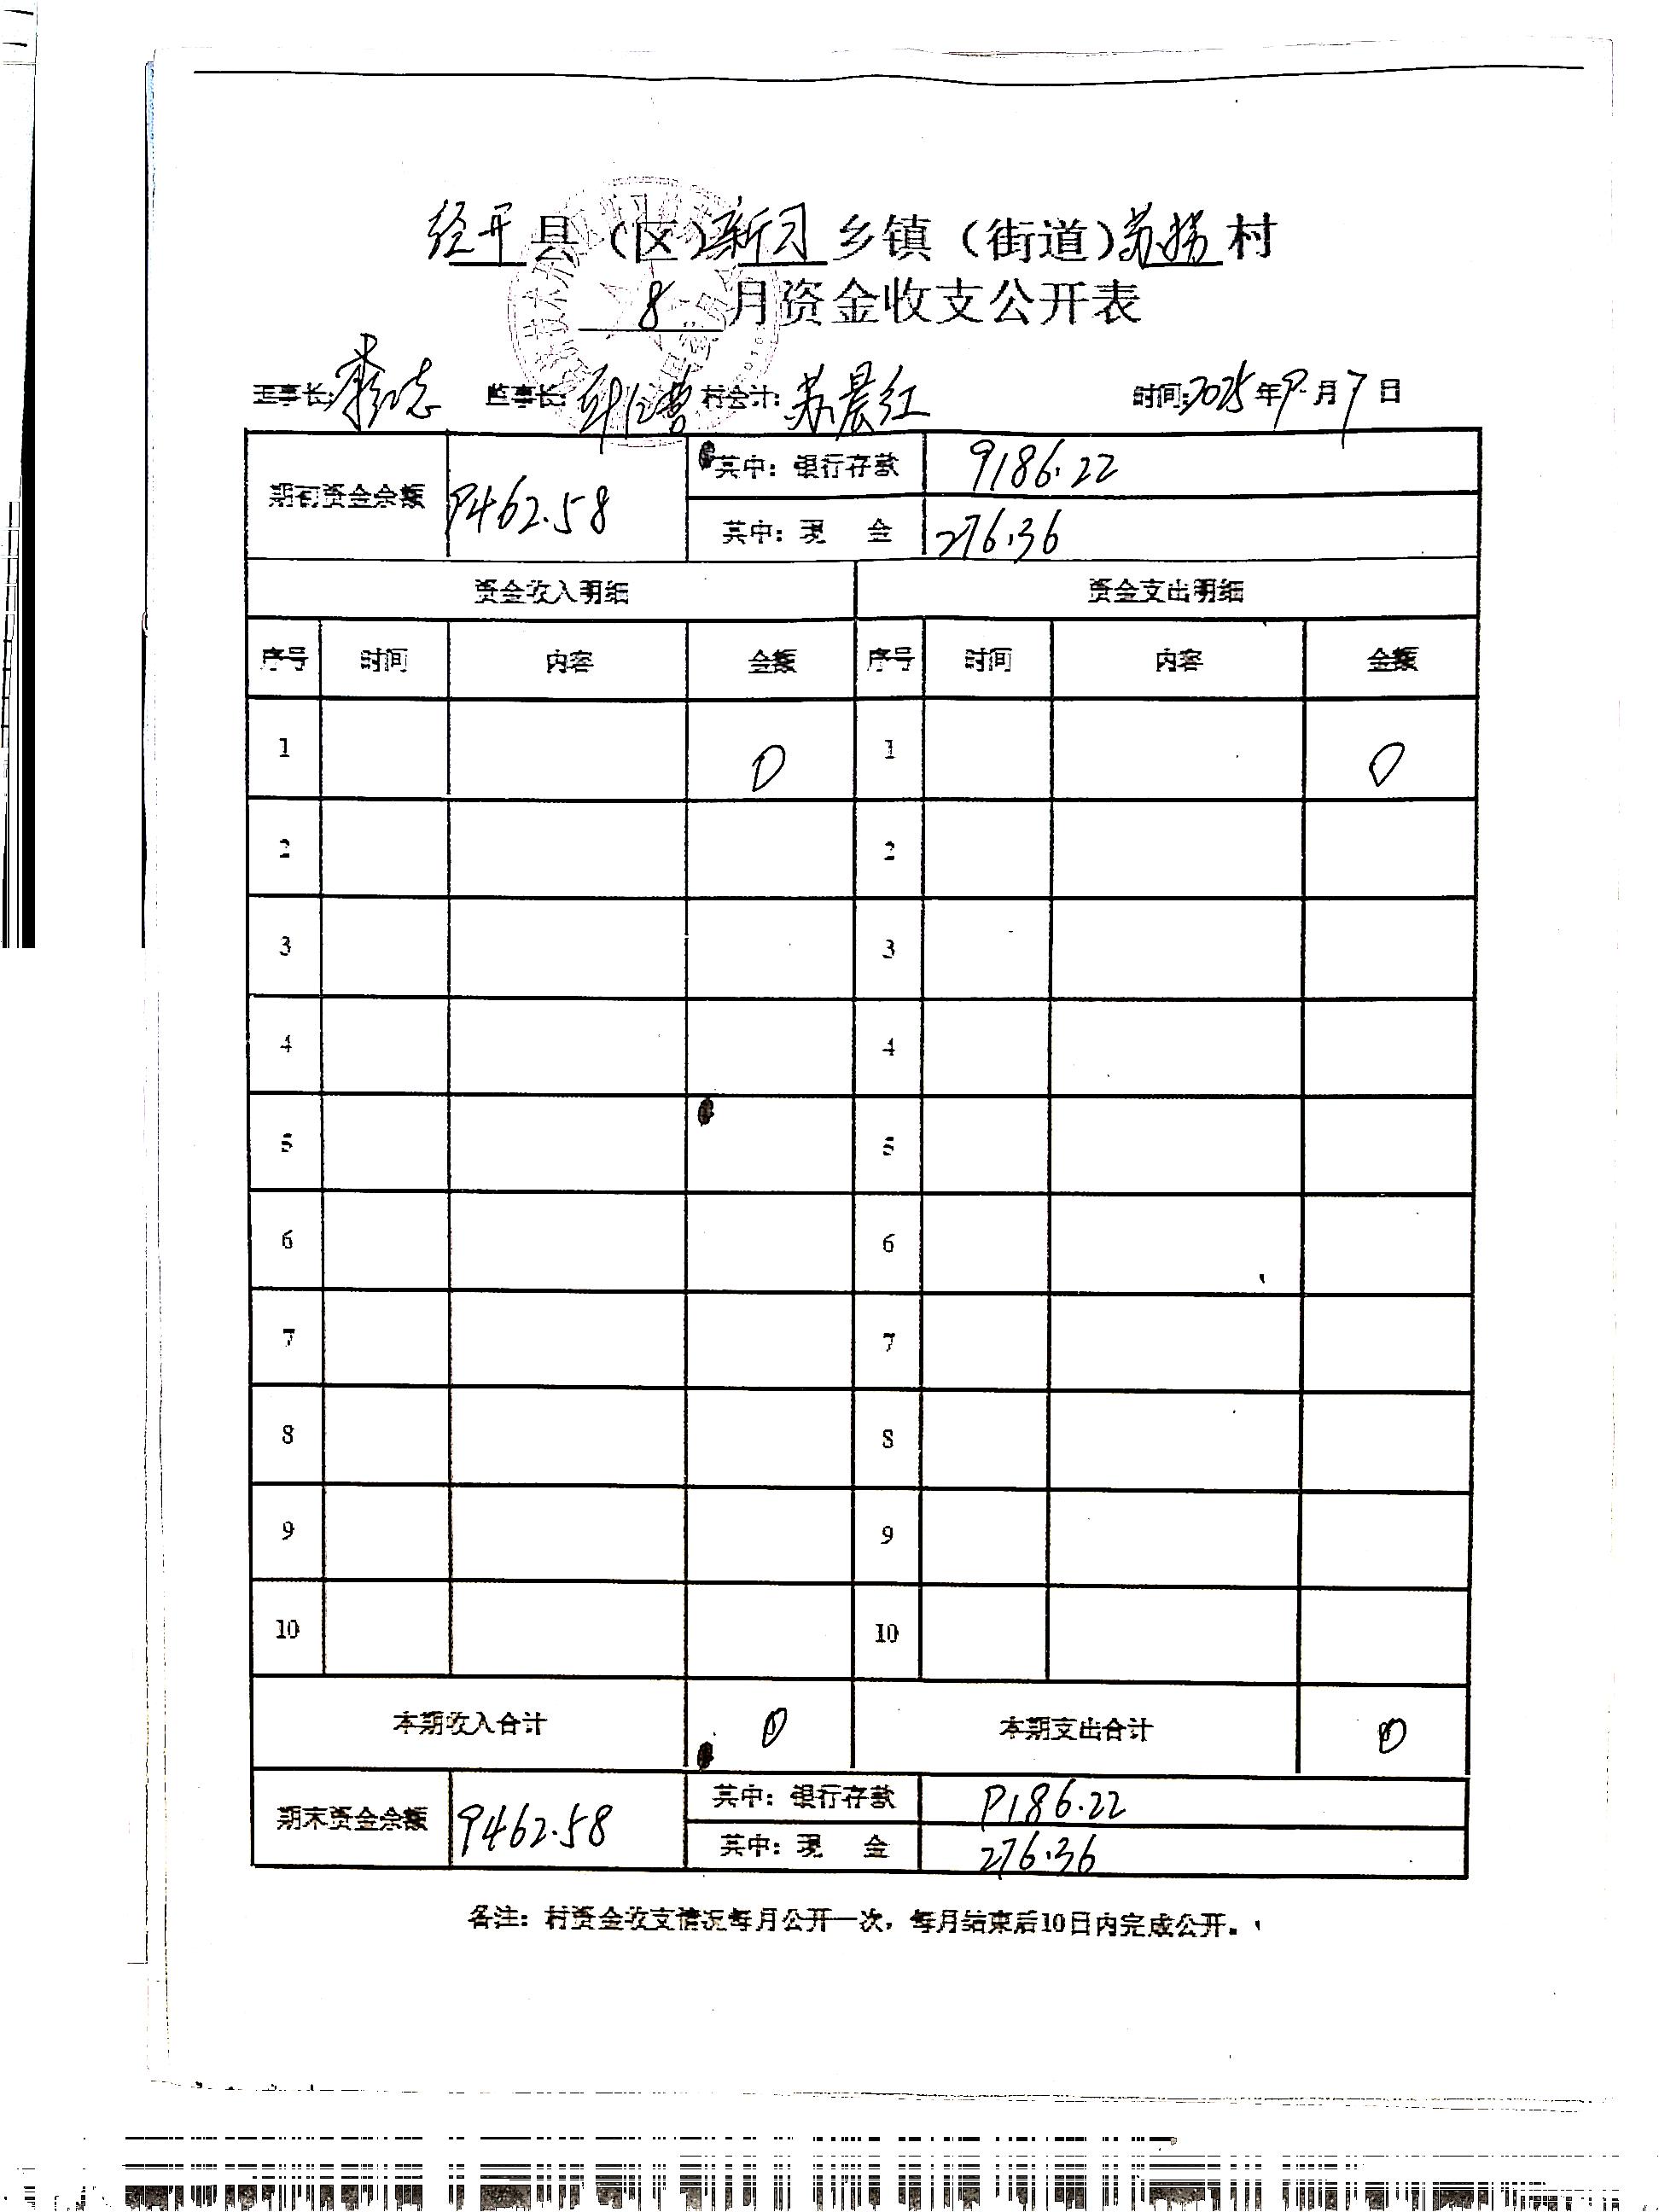 经开县（区）新习乡镇（街道）苏楼村
8月资金收支公开表
理事长: 监事长: 村会计: 苏晨红 时间:2025年9月7日
期初资金余额 9462.58 其中：银行存款 9186.22
其中：现 金 276.36
资金收入明细 资金支出明细
序号 时间 内容 金额 序号 时间 内容 金额
1 0 1 0
2 2
3 3
4 4
5 5
6 6
7 7
8 8
9 9
10 10
本期收入合计 0 本期支出合计 0
期末资金余额 9462.58 其中：银行存款 9186.22
其中：现 金 276.36
备注：村资金收支情况每月公开一次，每月结束后10日内完成公开。